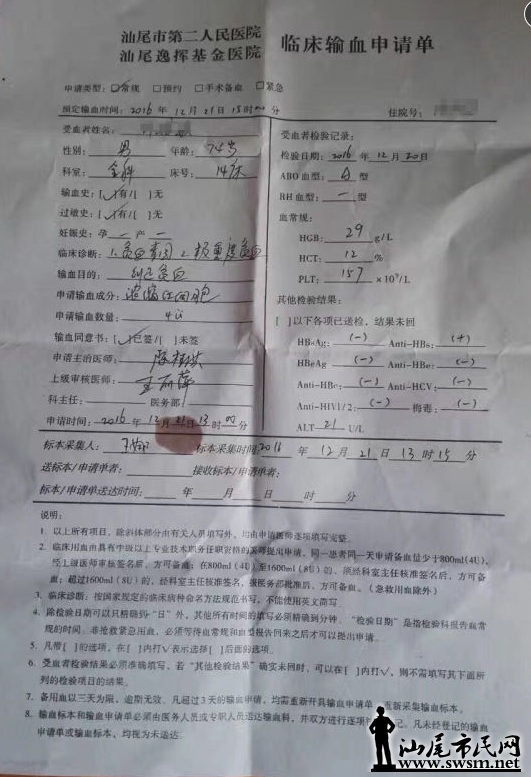 汕尾市第二人民医院
汕尾逸挥基金医院
临床输血申请单
申请类型: ☑常规 □预约 □手术备血 □紧急
预定输血时间: 2016 年 12 月 21 日 15 时 分
住院号:
受血者姓名:
性别: 男 年龄: 74岁
科室: 全科 床号: 14床
输血史: [✓]有/[ ]无
过敏史: [✓]有/[ ]无
妊娠史: 孕 — 产 —
临床诊断: 1.贫血 2.极重度贫血
输血目的: 纠正贫血
申请输血成分: 浓缩红细胞
申请输血数量: 4u
输血同意书: [✓]已签/[ ]未签
申请主治医师:
上级审核医师:
科主任: 医务部
申请时间: 2016 年 12 月 日 13 时 分
受血者检验记录:
检验日期: 2016 年 12 月 20 日
ABO 血型: 型
RH 血型: 型
血常规:
HGB: 29 g/L
HCT: 12 %
PLT: 157 ×10⁹/L
其他检验结果:
[ ]以下各项已送检，结果未回
HBsAg: (-) Anti-HBs: (+)
HBeAg (-) Anti-HBe: (-)
Anti-HBc: (-) Anti-HCV: (-)
Anti-HIV1/2: (-) 梅毒: (-)
ALT 21 U/L
标本采集人: 标本采集时间: 2016 年 12 月 21 日 13 时 15 分
送标本/申请单者: 接收标本/申请单者:
标本/申请单送达时间: 年 月 日 时 分
说明:
1. 以上所有项目，除斜体部分由有关人员填写外，均由申请医师逐项填写完整。
2. 临床用血由具有中级以上专业技术职务任职资格的医师提出申请，同一患者同一天申请备血量少于800ml(4U)，
经上级医师审核签名后，方可备血；在800ml(4U)至1600ml(8U)的，须经科室主任核准签名后，方可备
血；超过1600ml(8U)的，经科室主任核准签名，报医务部批准后，方可备血。(急救用血除外)
3. 临床诊断：按国家规定的临床病种命名方法规范书写，不能使用英文简写
4. 除检验日期可以只精确到“日”外，其他所有时间的填写必须精确到分钟。“检验日期”是指检验科报告血常
规的时间。非抢救紧急用血，必须等待血常规和血型报告回来之后才可以提出申请。
5. 凡带[ ]的选项，在[ ]内打√表示选择[ ]后面的选项。
6. 受血者检验结果必须准确填写，若“其他检验结果”确实未回时，可以在[ ]内打√，则不需填写其下面所
列的检验项目的结果。
7. 备用血以三天为限，逾期无效。凡超过3天的输血申请，均需重新开具输血申请单 重新采集输血标本。
8. 输血标本和输血申请单必须由医务人员或专职人员送达输血科，并双方进行逐项 记。凡未经登记的输血
申请单或输血标本，均视为未送达。
汕尾市民网
www.swsm.net